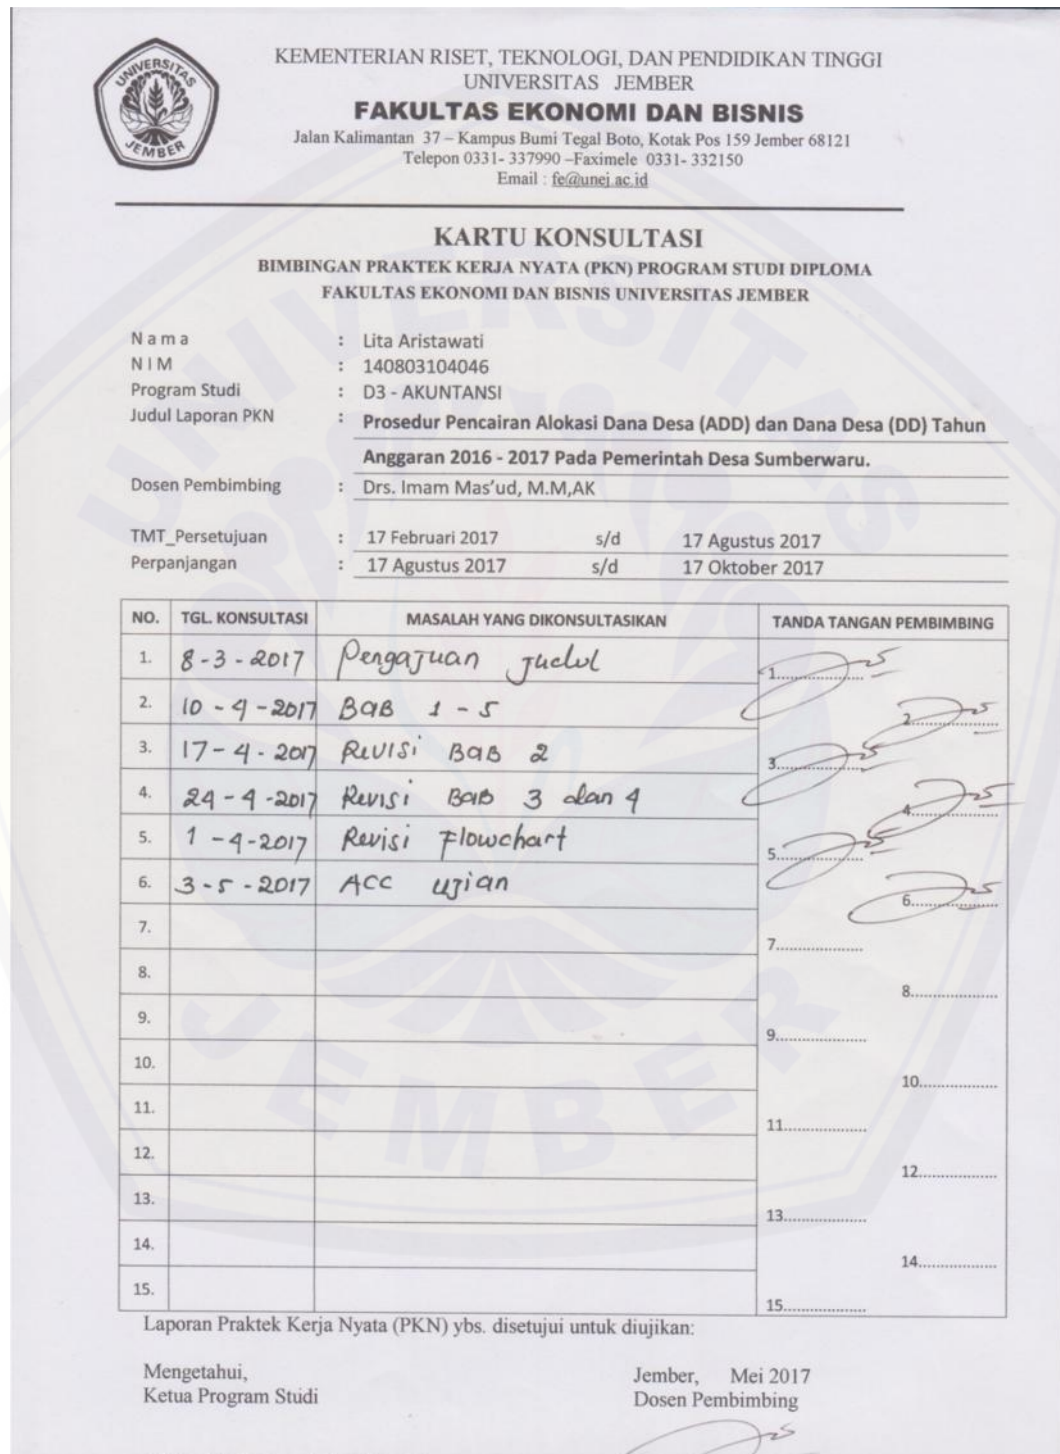 UNIVERSITAS
JEMBER
KEMENTERIAN RISET, TEKNOLOGI, DAN PENDIDIKAN TINGGI
UNIVERSITAS JEMBER
FAKULTAS EKONOMI DAN BISNIS
Jalan Kalimantan 37 – Kampus Bumi Tegal Boto, Kotak Pos 159 Jember 68121
Telepon 0331- 337990 –Faximele 0331- 332150
Email : fe@unej.ac.id
KARTU KONSULTASI
BIMBINGAN PRAKTEK KERJA NYATA (PKN) PROGRAM STUDI DIPLOMA
FAKULTAS EKONOMI DAN BISNIS UNIVERSITAS JEMBER
N a m a : Lita Aristawati
N I M : 140803104046
Program Studi : D3 - AKUNTANSI
Judul Laporan PKN : Prosedur Pencairan Alokasi Dana Desa (ADD) dan Dana Desa (DD) Tahun
Anggaran 2016 - 2017 Pada Pemerintah Desa Sumberwaru.
Dosen Pembimbing : Drs. Imam Mas'ud, M.M,AK
TMT_Persetujuan : 17 Februari 2017 s/d 17 Agustus 2017
Perpanjangan : 17 Agustus 2017 s/d 17 Oktober 2017
NO. TGL. KONSULTASI MASALAH YANG DIKONSULTASIKAN TANDA TANGAN PEMBIMBING
1. 8-3-2017 Pengajuan Judul 1..................
2. 10-4-2017 BAB 1 - 5 2..................
3. 17-4-2017 Revisi BAB 2 3..................
4. 24-4-2017 Revisi BAB 3 dan 4 4..................
5. 1-4-2017 Revisi Flowchart 5..................
6. 3-5-2017 ACC ujian 6..................
7. 7..................
8. 8..................
9. 9..................
10. 10..................
11. 11..................
12. 12..................
13. 13..................
14. 14..................
15. 15..................
Laporan Praktek Kerja Nyata (PKN) ybs. disetujui untuk diujikan:
Mengetahui, Jember, Mei 2017
Ketua Program Studi Dosen Pembimbing
UNIVERSITAS
JEMBER